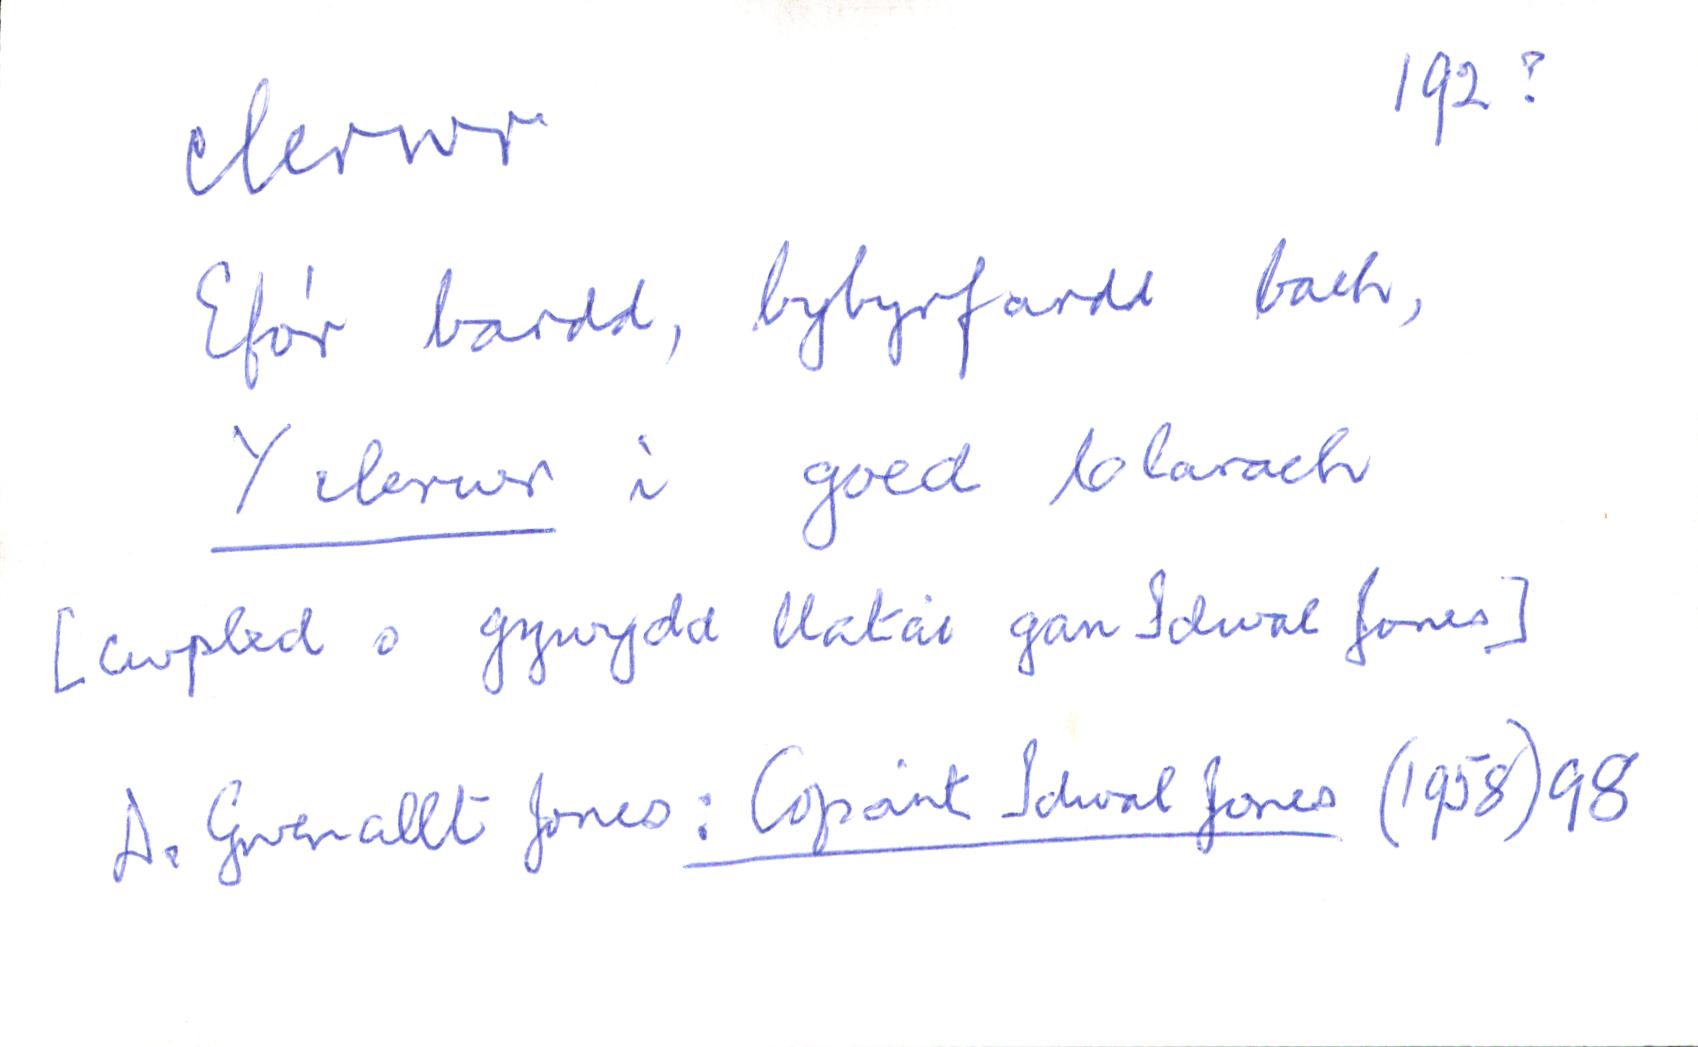 192?
clerwr
Efô'r bardd, bybyrfardd bach,
Y clerwr i goed Clarach
[cwpled o gywydd llatai gan Idwal Jones]
D. Gwenallt Jones: Cofiant Idwal Jones (1958) 98